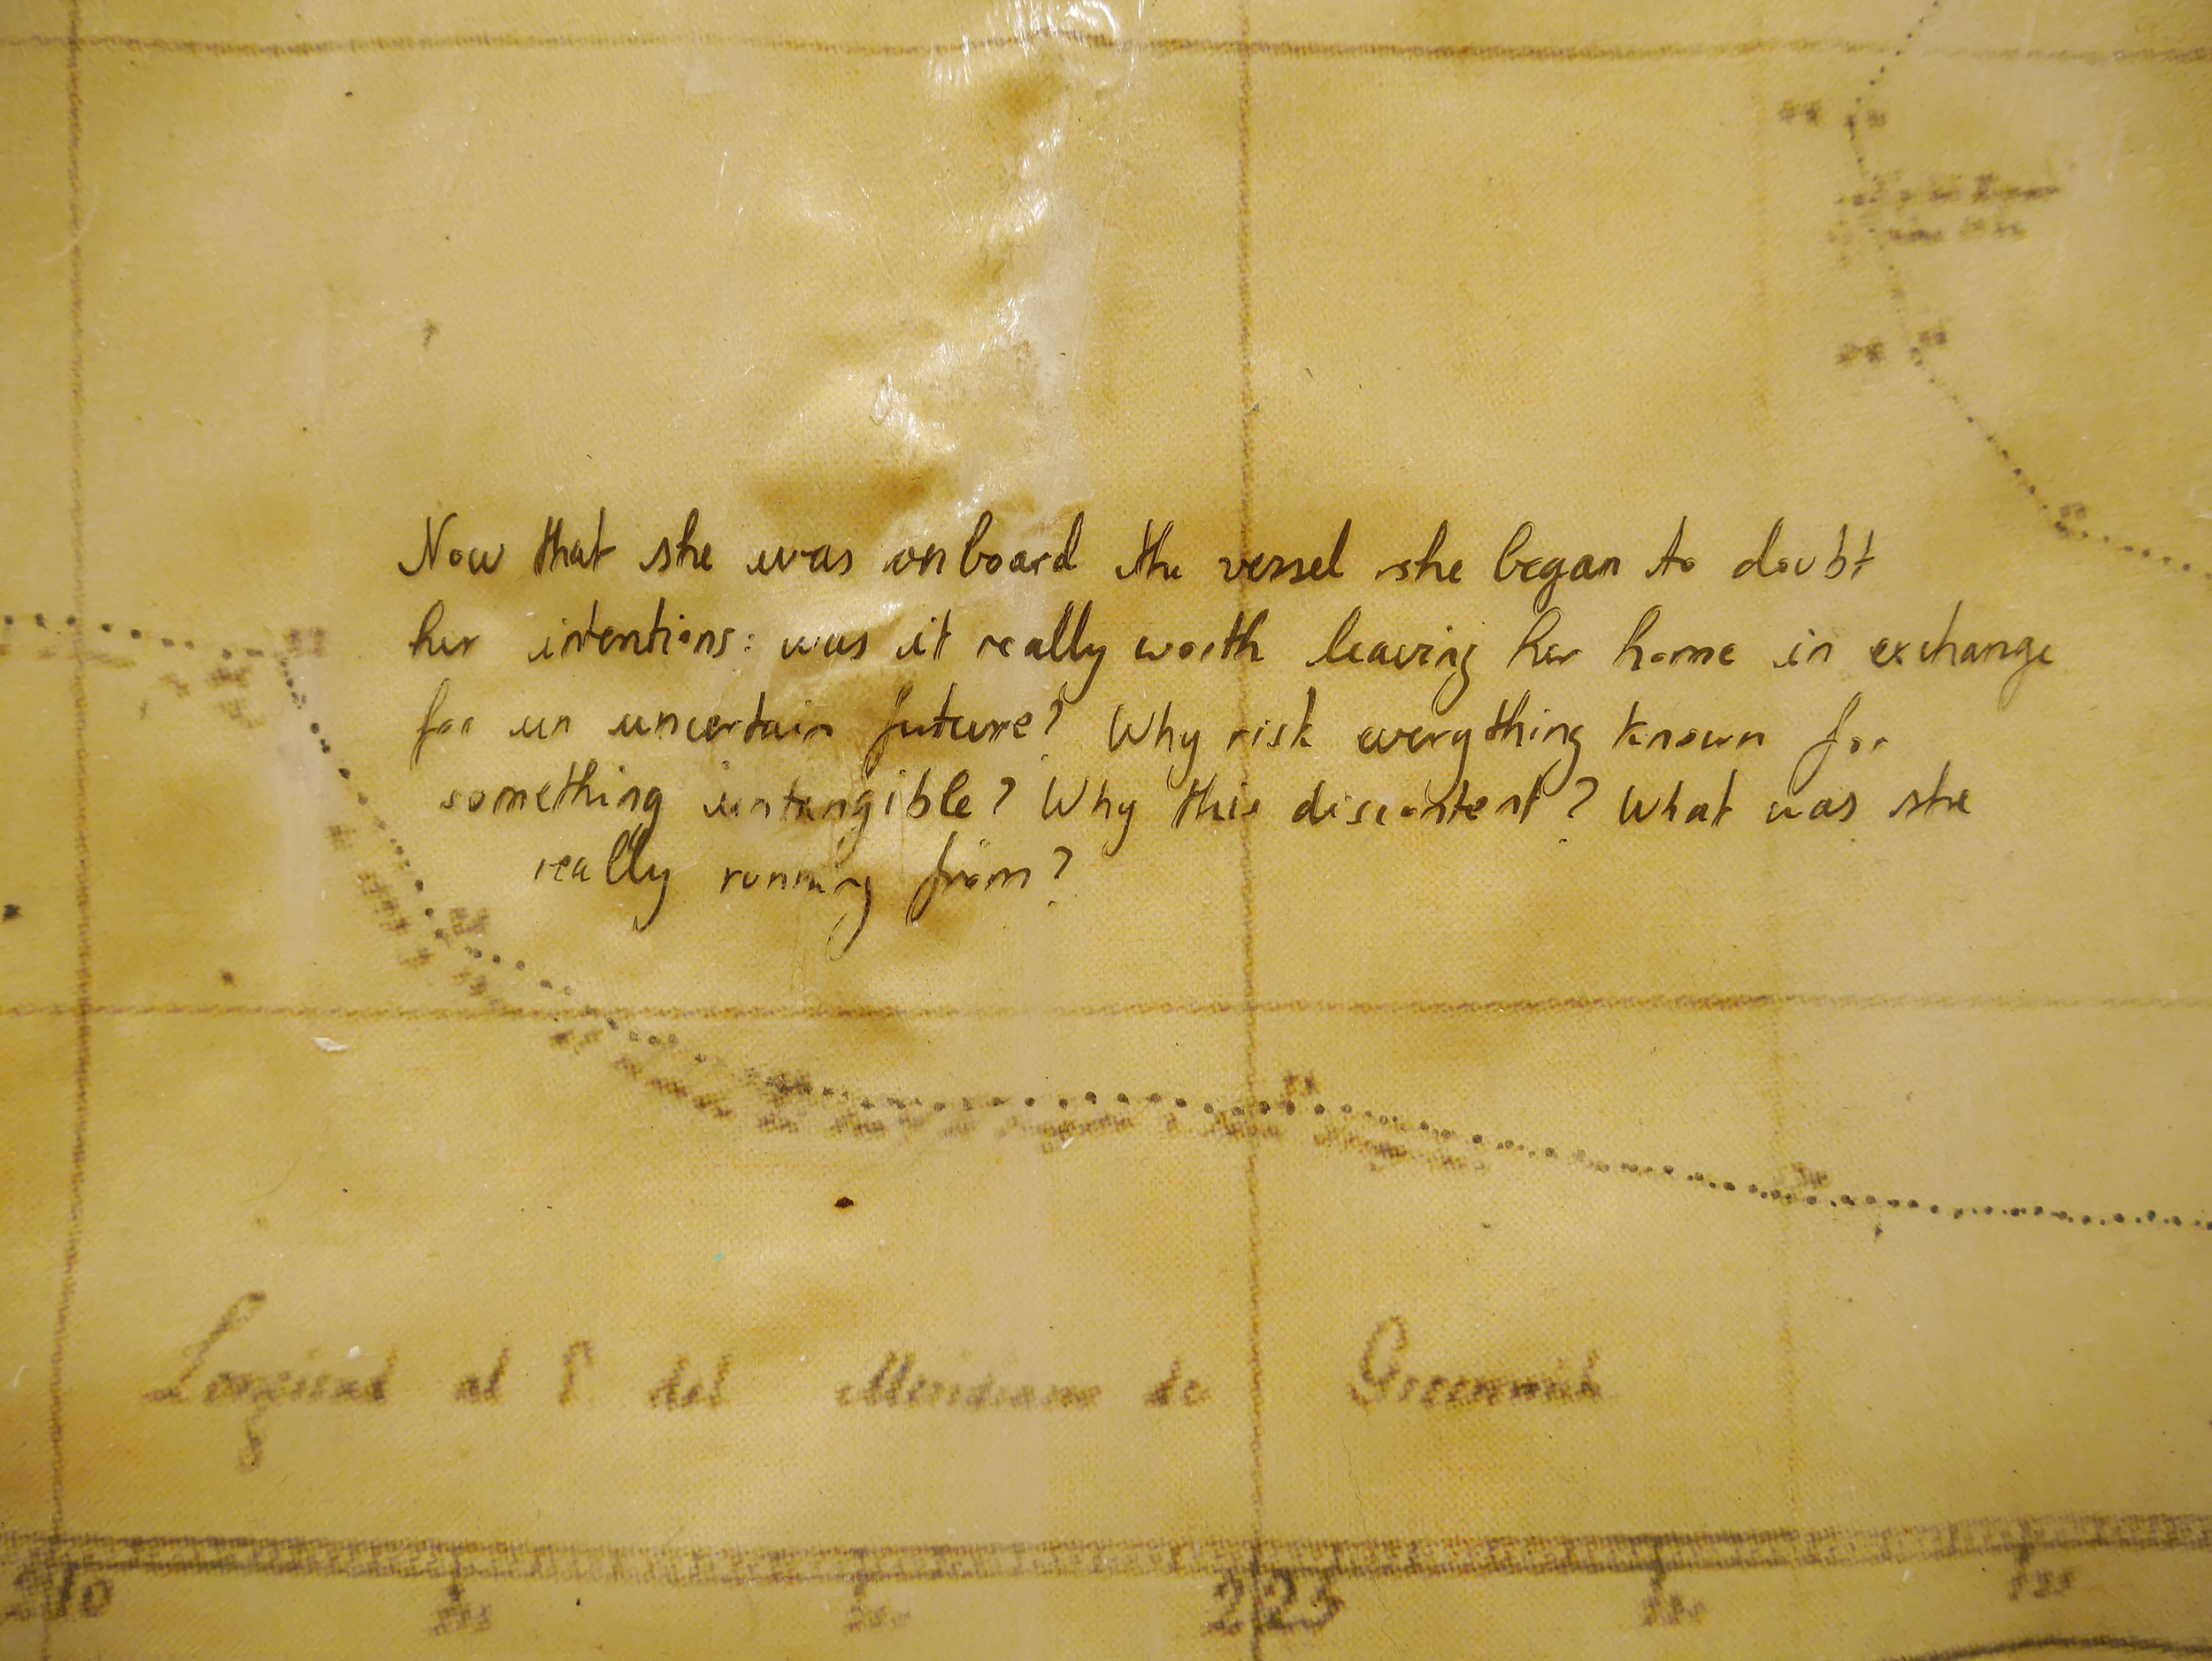 Now that she was onboard the vessel she began to doubt
her intentions: was it really worth leaving her home in exchange
for un uncertain future? Why risk everything known for
something untangible? Why this discontent? What was she
really running from?
Longitud al E. del Meridiano de Greenwich
210 225